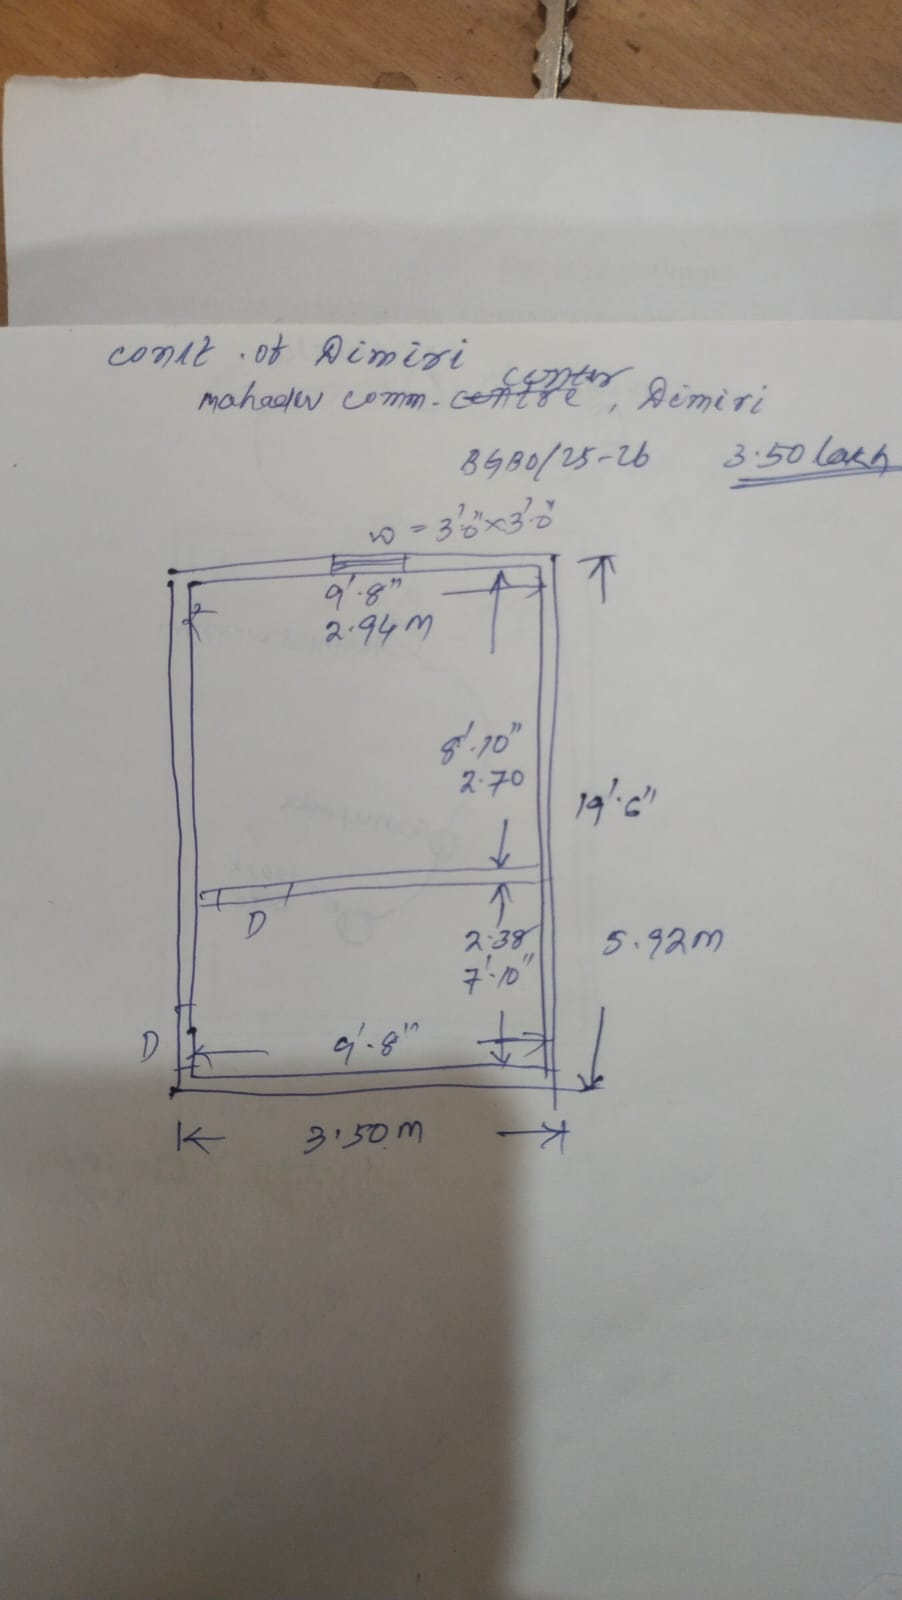 const. of Dimiri
center
mahadev comm. centre, Dimiri
BGBO/25-26 3.50 lakh
W = 3'-0" x 3'-0"
9'-8"
2.94 M
8'-10"
2.70
19'-6"
D
2.38
5.92 M
7'-10"
D
9'-8"
3.50 M